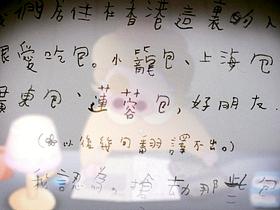 我們居住在香港這裏的人
很愛吃包。小籠包、上海包
廣東包、蓮蓉包，好朋友
(以後幾句翻譯不出。)
我認為，搶劫那些包